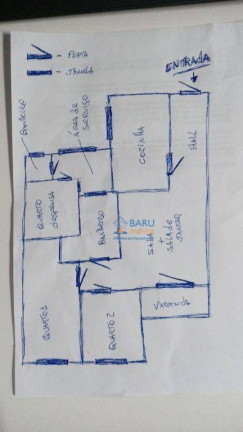 PORTA
JANELA
ENTRADA
BANHEIRO
ÁREA DE
SERVIÇO
COZINHA
HALL
QUARTO
DESPENSA
BANHEIRO
BARU
SALA
+
SALA DE
JANTAR
VARANDA
QUARTO 1
QUARTO 2